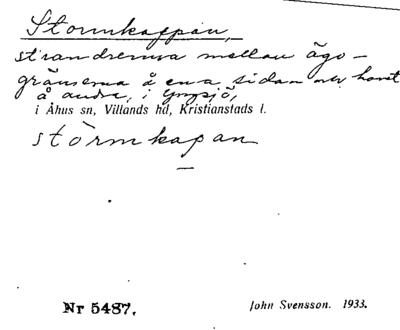 Stormkappan,
strandremsa mellan ägo-
gränserna å ena sidan och havet
å andra, i Yngsjö,
i Åhus sn, Villands hd, Kristianstads l.
stòrmkapan
Nr 5487.
John Svensson. 1933.